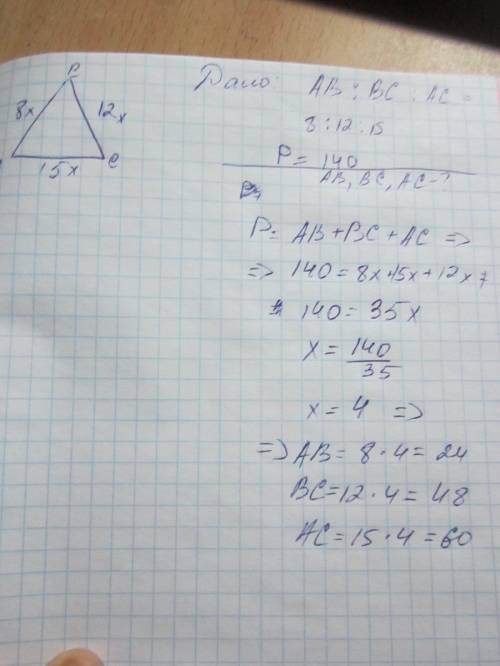 B
8x 12x
15x C
Дано: AB : BC : AC =
8 : 12 : 15
P = 140
AB, BC, AC - ?
P = AB + BC + AC =>
=> 140 = 8x + 15x + 12x
140 = 35x
x = 140/35
x = 4 =>
=> AB = 8 · 4 = 24
BC = 12 · 4 = 48
AC = 15 · 4 = 60